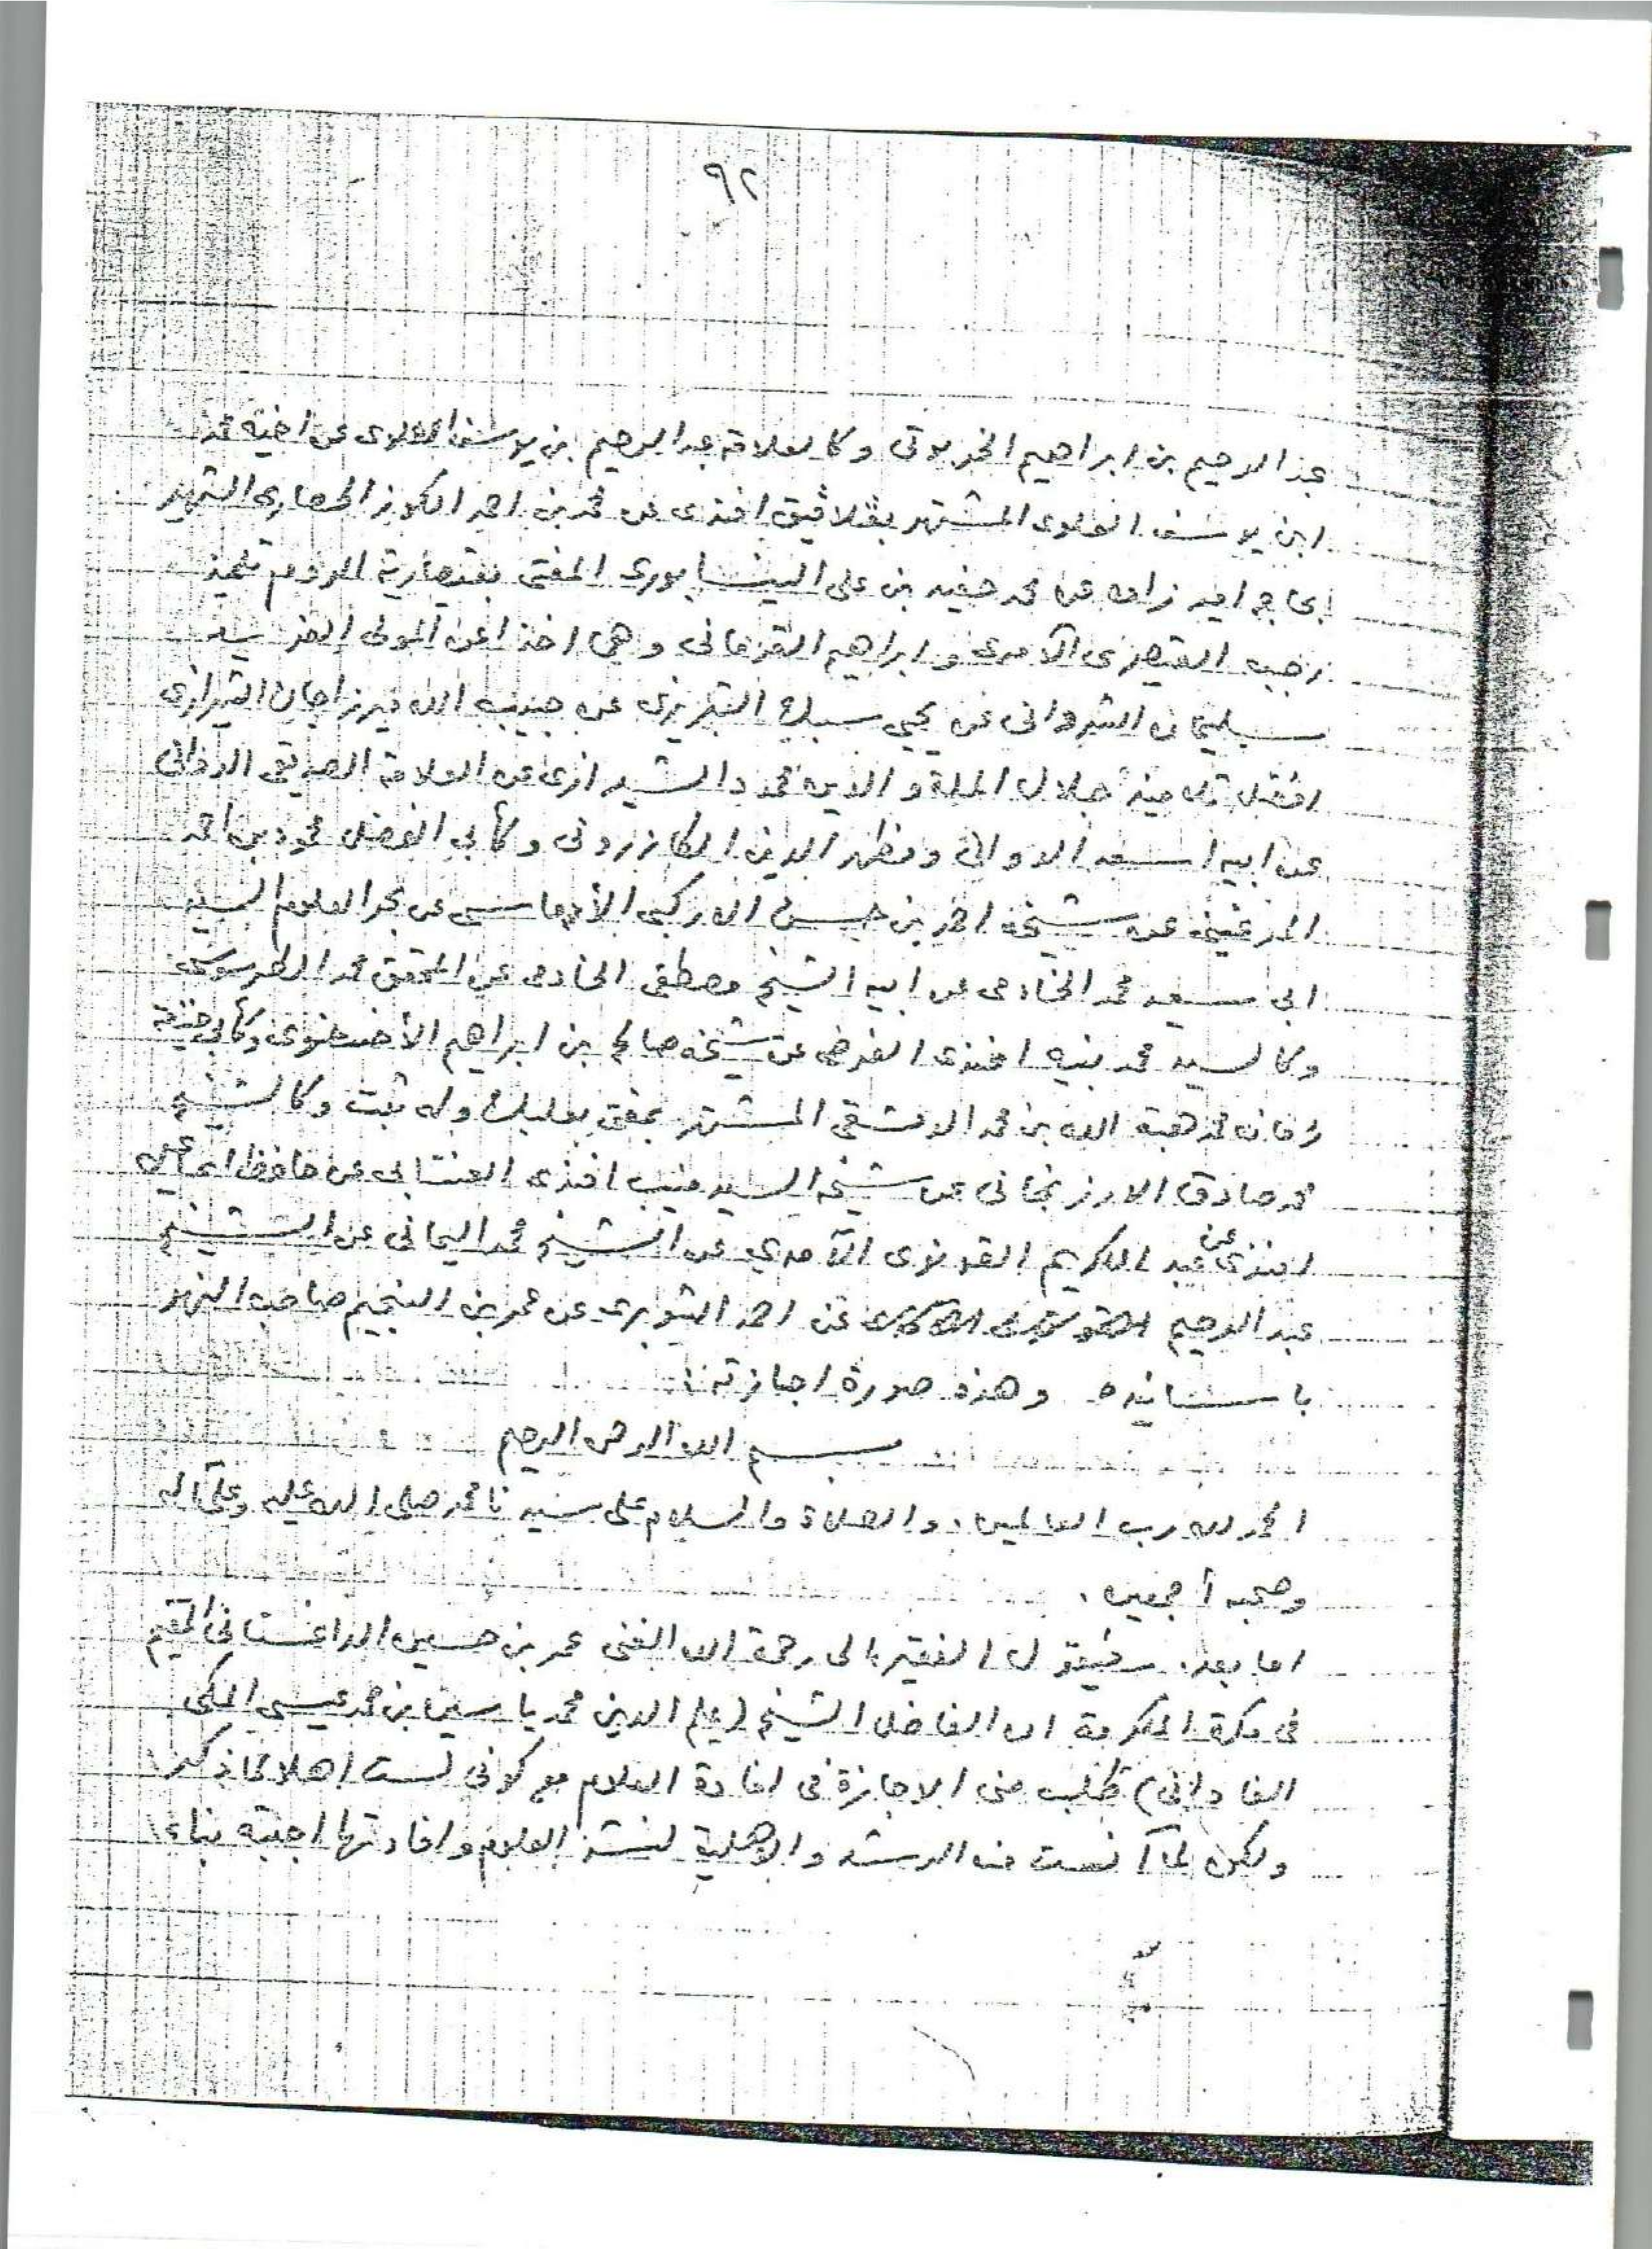 ٩٢
عبد الرحيم بن ابراهيم الخربوتى وكالعلامة عبد الرحيم بن يوسف العلوى عن اخيه محمد
ابن يوسف العلوى المشتهر بقلاقيق افندى عن محمد بن احمد الكوز الحصارى الشهير
بحاجه امير زاده عن محمد حفيد بن على النيسابورى المفتى بقيصارية الروم تلميذ
رجب القيصرى الآمدى وابراهيم القرمانى وهما اخذا عن المولى
سليمان الشروانى عن يحيى سبك التبريزى عن حبيب الله ميرزاجان الشيرازى
افضل تلاميذ جلال الملة والدين محمود الشيرازى عن العلامة الصديقى الدوانى
عن ابيه اسعد الدوانى ومظهر الدين الكازرونى وكأبى الفضل محمود بن احمد
المرغينى عن شيخه احمد بن حسن الأرضاسى عن بحر العلوم السيد
ابى سعيد محمد الخادمى عن ابيه الشيخ مصطفى الخادمى عن المحقق محمد الطرسوسى
وكالسيد محمد بنيه افندى الفرضى عن شيخه صالح بن ابراهيم وكأبى حنيفة
زمانه محمد هبة الله بن محمد الدمشقى المشتهر بمفتى بعلبك وله ثبت وكالشيخ
محمد صادق الارزنجانى عن شيخه السيد منيب افندى العنتابى عن حافظ اسماعيل
افندى عن عبد الكريم القونوى الآمدي عن الشيخ محمد اليمانى عن الشيخ
عبد الرحيم عن احمد الشوبرى عن عمر بن النجيم صاحب النهر
باسانيده وهذه صورة اجازته :
بسم الله الرحمن الرحيم
الحمد لله رب العالمين . والصلاة والسلام على سيدنا محمد صلى الله عليه وعلى آله
وصحبه أجمعين .
اما بعد . فيقول الفقير الى رحمة الله الغنى عمر بن حسين الداغستانى المقيم
فى مكة المكرمة ان الفاضل الشيخ (علم الدين محمد ياسين بن محمد عيسى المكى
الفادانى) طلب منى الاجازة فى افادة العلوم مع كونى لست اهلا لما ذكر
ولكن لما آنست منه الرشد والاهلية لنشر العلوم وافادتها اجبته بناء